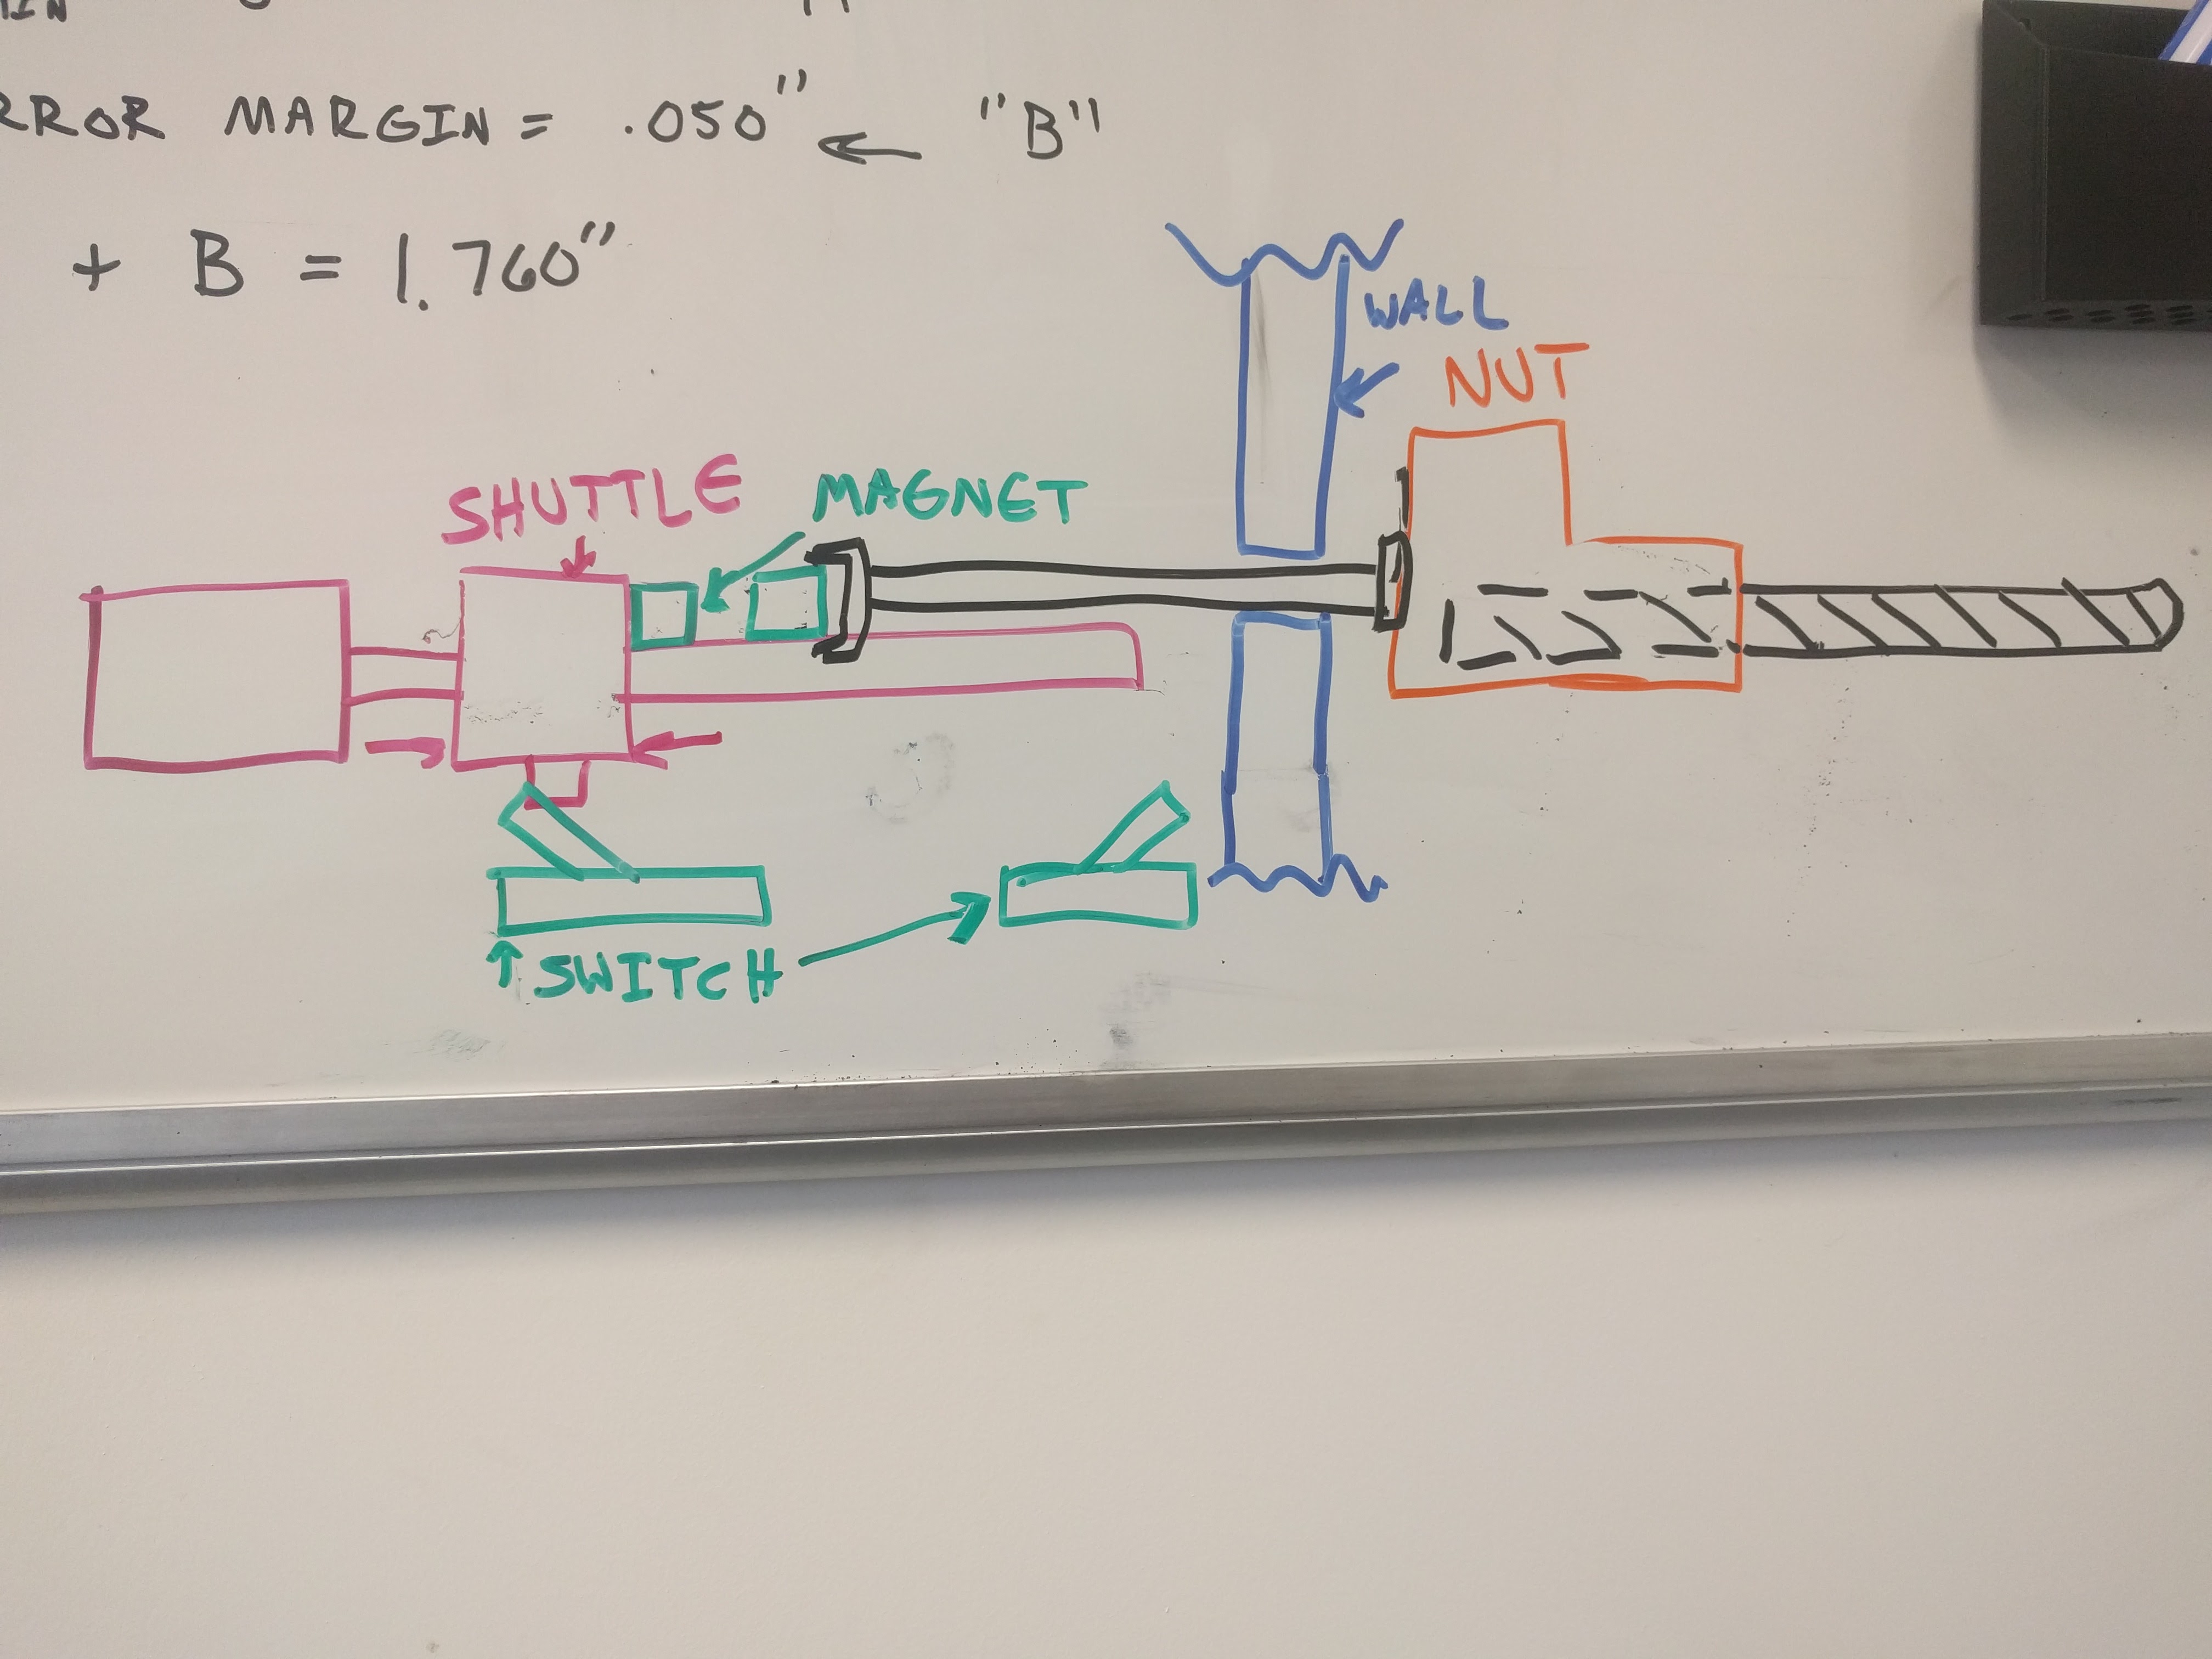 RROR MARGIN = .050" ← "B"
+ B = 1.760"
WALL
NUT
SHUTTLE
MAGNET
↑ SWITCH